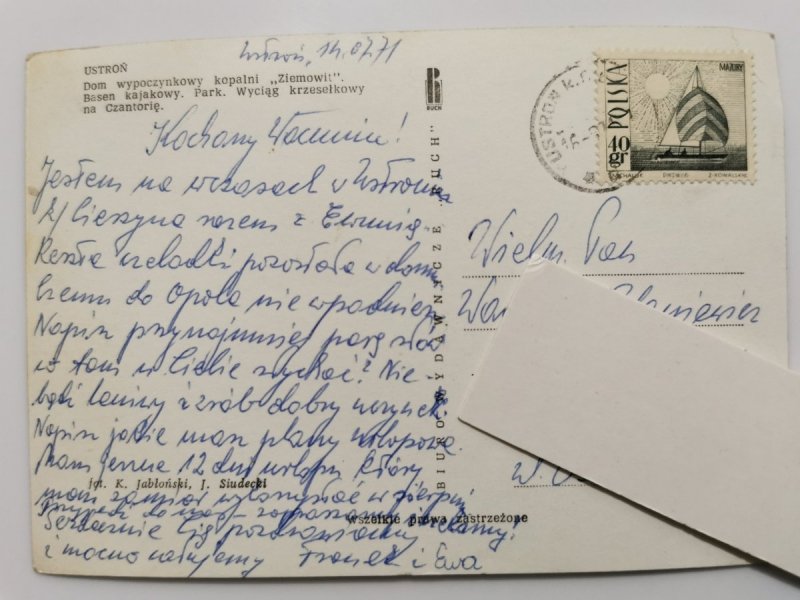 Ustroń, 14.07.71
USTROŃ
Dom wypoczynkowy kopalni „Ziemowit".
Basen kajakowy. Park. Wyciąg krzesełkowy
na Czantorię.
RUCH
BIURO WYDAWNICZE „RUCH"
USTROŃ K.
16
POLSKA
MAZURY
40
gr
Z. KOWALSKI
Kochany
Jestem na wczasach w Ustroniu
k/Cieszyna razem z Ewunią.
Reszta czeladki pozostała w domu
Czemu do Opola nie wpadniesz
Napisz przynajmniej parę słów
w tam u Ciebie słychać? Nie
bądź leniwy i zrób dobry uczynek.
Napisz jakie masz plany urlopowe
Mam jeszcze 12 dni urlopu który
mam zamiar wykorzystać w sierpniu
Przyjedź do nas – zapraszamy
Serdecznie Cię pozdrawiamy
i mocno całujemy Franek i Ewa
fot. K. Jabłoński, J. Siudecki
wszelkie prawa zastrzeżone
Wielm. Pan